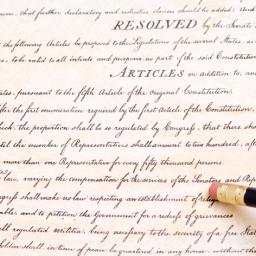 that further declaratory and restrictive clauses should be added: And
RESOLVED by the Senate
the following Articles be proposed to the Legislatures of the several States, as
to be valid to all intents and purposes, as part of the said Constitution
ARTICLES in addition to, and
States, pursuant to the fifth Article of the original Constitution.
After the first enumeration required by the first Article of the Constitution,
which, the proportion shall be so regulated by Congress, that there shall
until the number of Representatives shall amount to two hundred, after
more than one Representative for every fifty thousand persons.
law, varying the compensation for the services of the Senators and Rep
Congress shall make no law respecting an establishment of relig
and to petition the Government for a redress of grievances
well regulated militia, being necessary to the security of a free Sta
Soldier shall, in time of peace be quartered in any house, without the